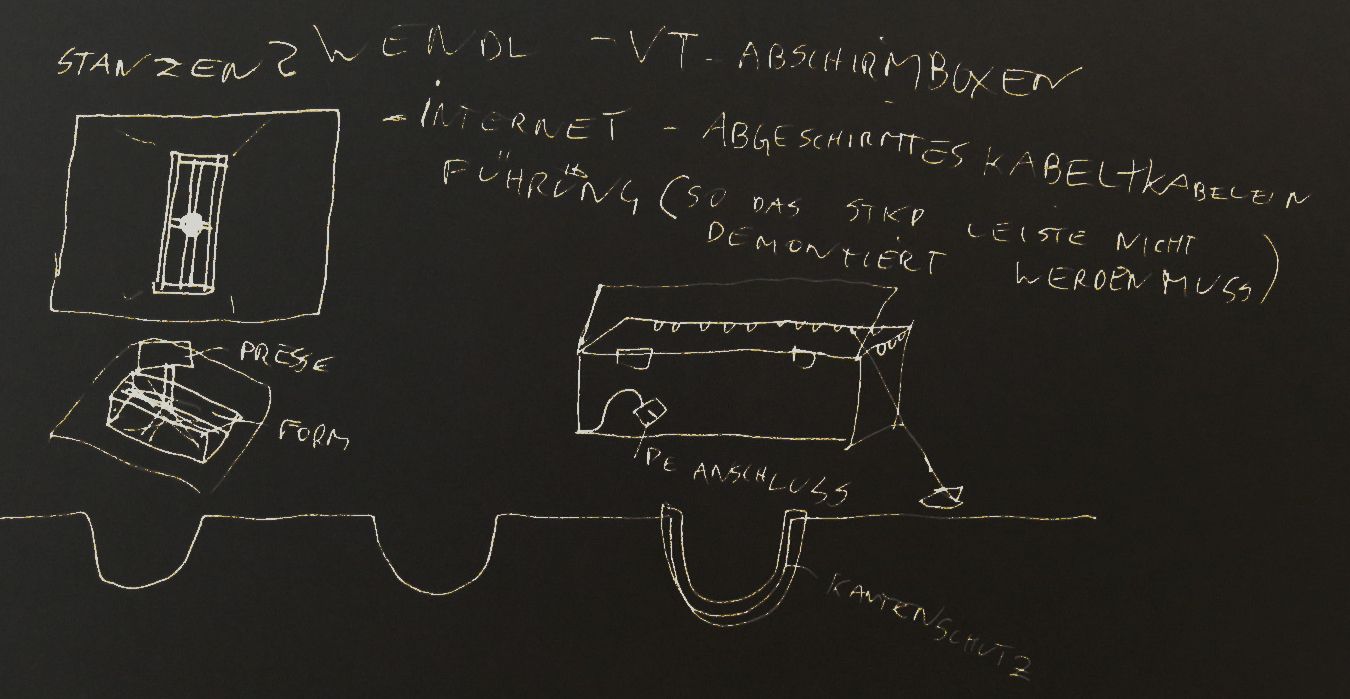 STANZEN?
WENDL - VT - ABSCHIRMBOXEN
- INTERNET - ABGESCHIRMTES KABEL + KABELEIN
FÜHRUNG (SO DAS STKD LEISTE NICHT
DEMONTIERT WERDEN MUSS)
PRESSE
FORM
PE ANSCHLUSS
KANTENSCHUTZ